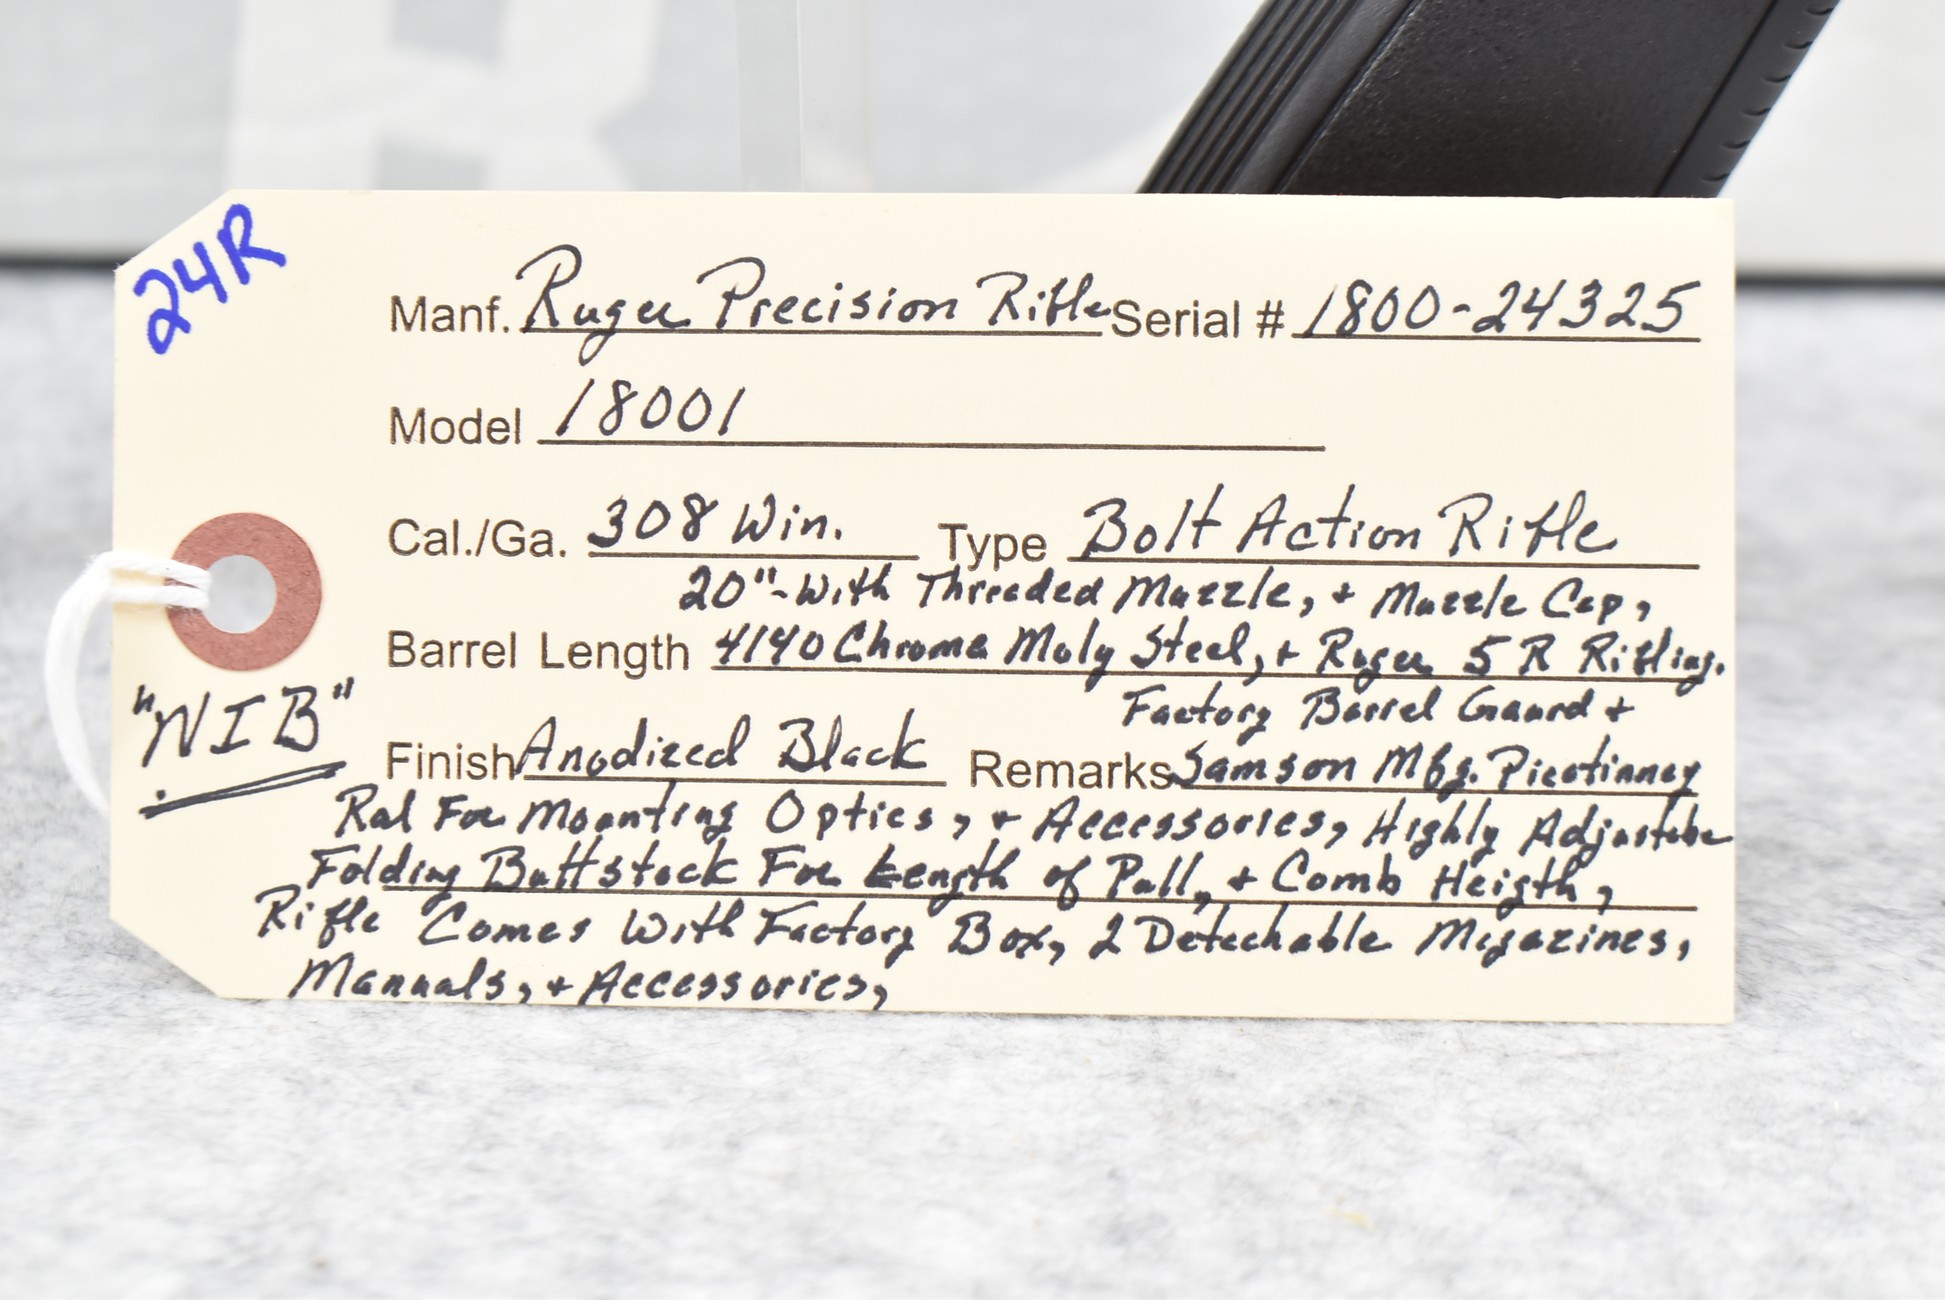 24R
Manf. Ruger Precision Rifle Serial # 1800-24325
Model 18001
Cal./Ga. 308 Win. Type Bolt Action Rifle
20"-With Threaded Muzzle, + Muzzle Cap,
Barrel Length 4140 Chrome Moly Steel, + Ruger 5R Rifling.
"NIB"
Factory Barrel Gaurd +
Finish Anodized Black Remarks Samson Mfg. Picatinney
Ral For Mounting Optics, + Accessories, Highly Adjustabe
Folding Buttstock For Length of Pull, + Comb Heigth,
Rifle Comes With Factory Box, 2 Detechable Migazines,
Manuals, + Accessories,